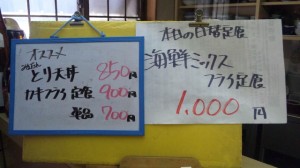 オススメ
とり天丼 850円
カキフライ定食 900円
単品 700円
本日の日替定食
海鮮ミックス
フライ定食
1,000円